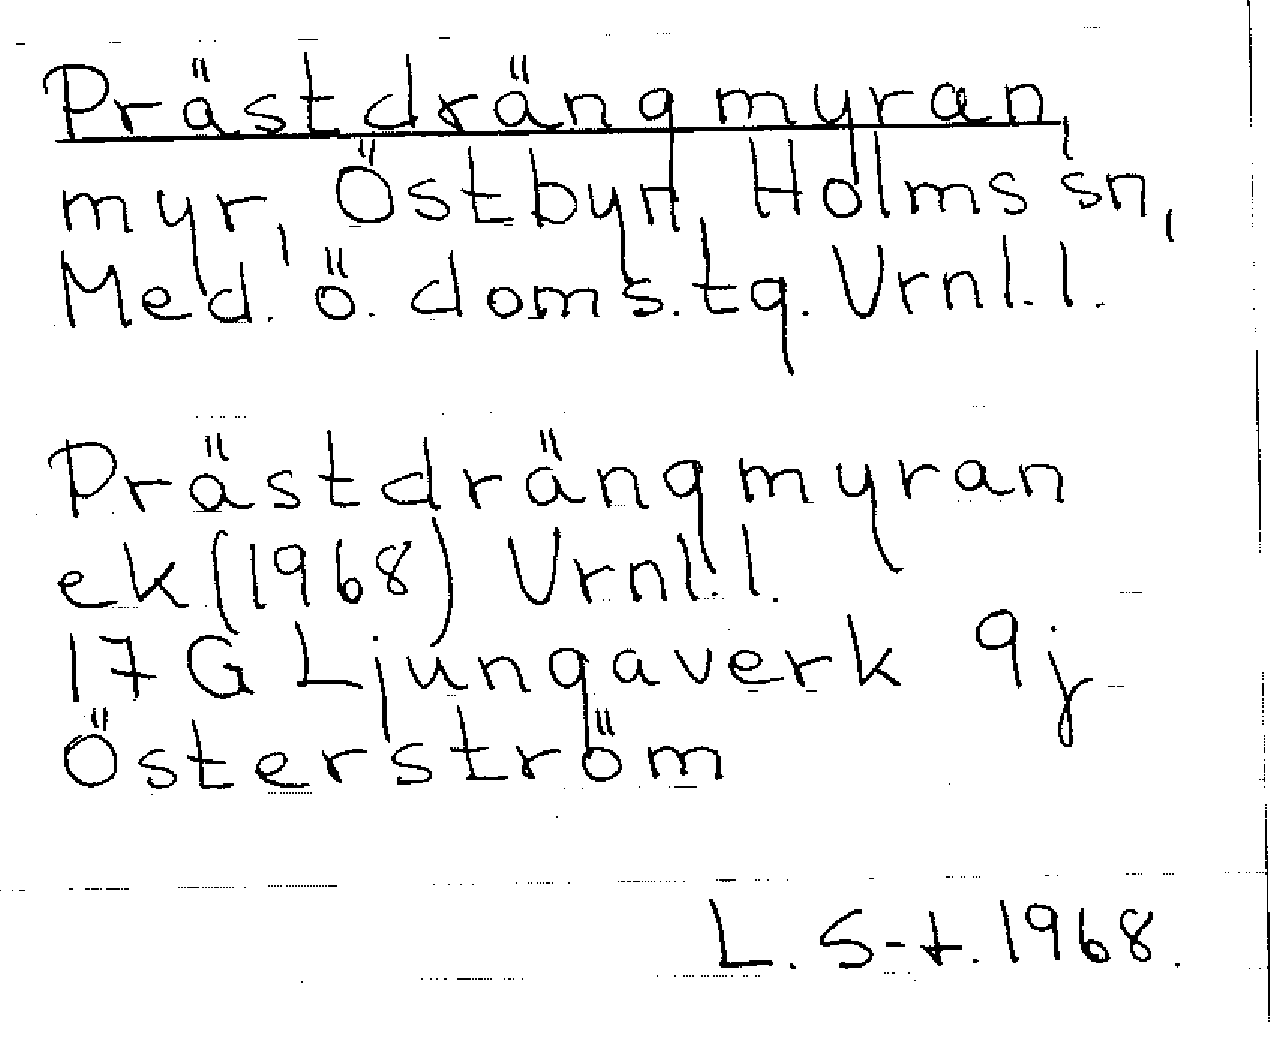 Prästdrängmyran,
myr, Östbyn, Holms sn,
Med. ö. doms.tg. Vrnl.l.
Prästdrängmyran
ek.(1968) Vrnl.l.
17 G Ljungaverk 9j
Österström
L. S-t. 1968.